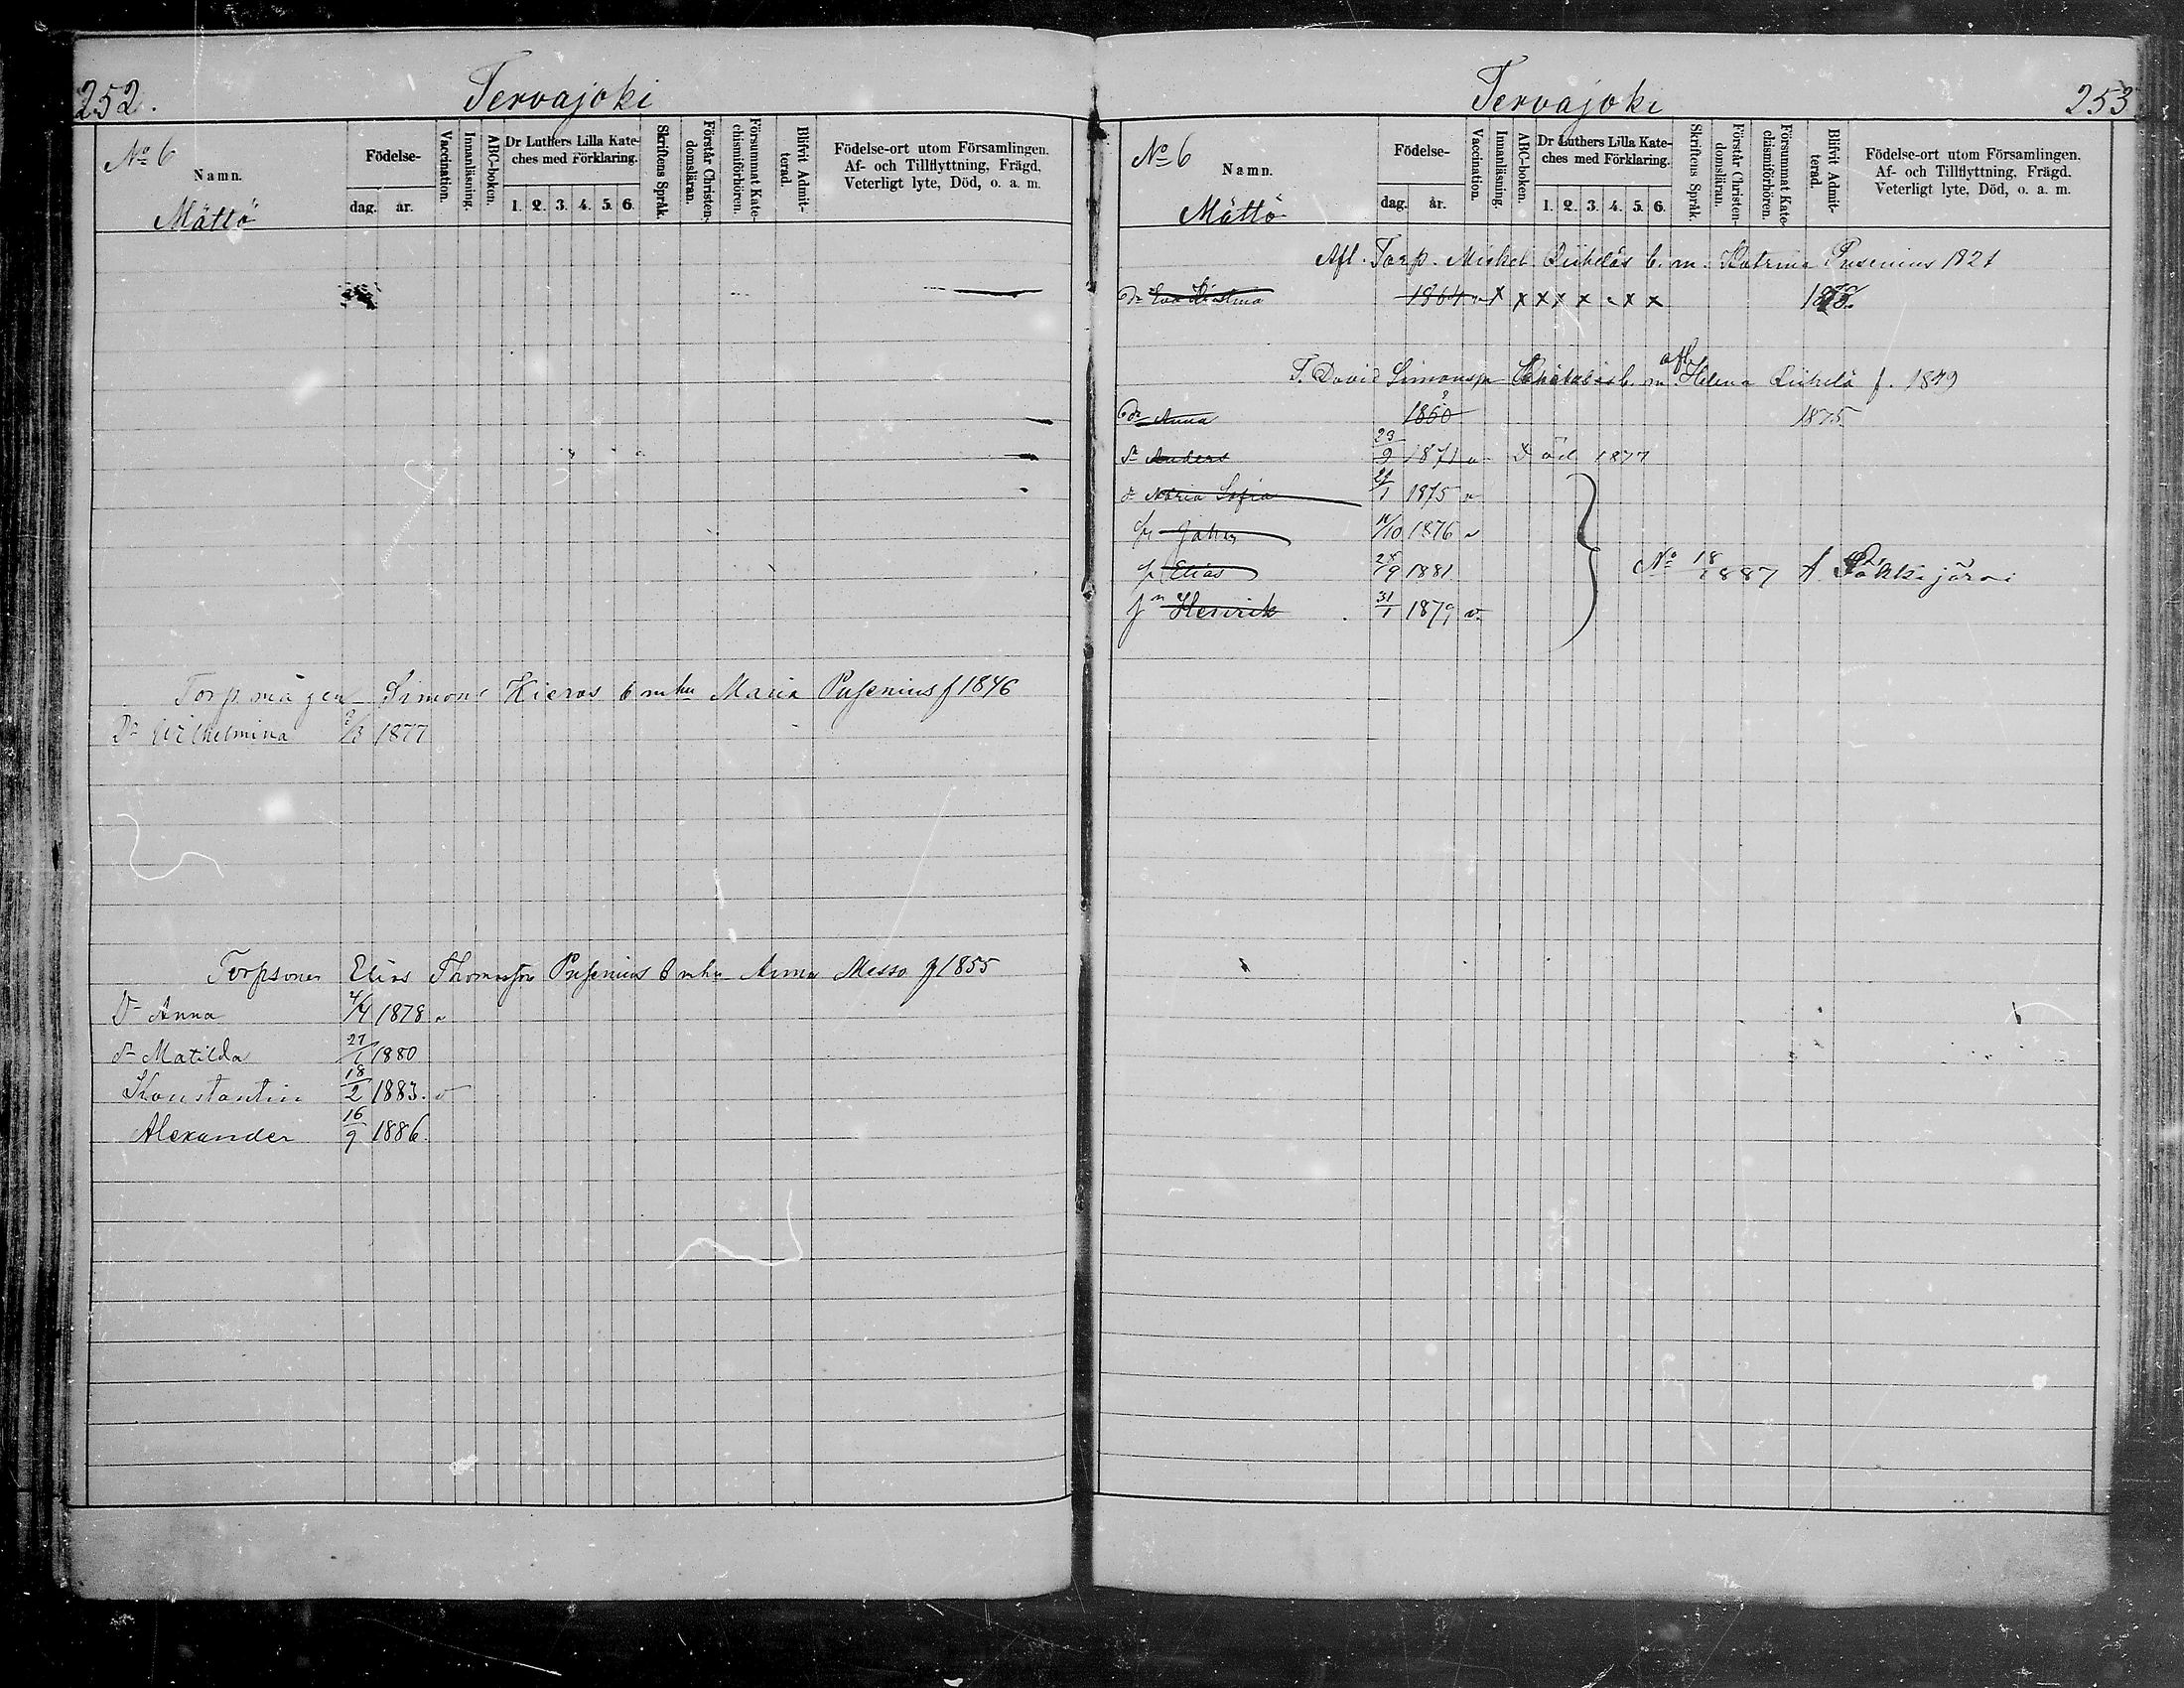 252.
Tervajoki
No 6
Namn.
Mättö
Födelse-
dag. år.
Vaccination.
Innanläsning.
ABC-boken.
Dr Luthers Lilla Kate-
ches med Förklaring.
1. 2. 3. 4. 5. 6.
Skriftens Språk.
Förstår Christen-
domsläran.
Försummat Kate-
chismiförhören.
Blifvit Admit-
terad.
Födelse-ort utom Församlingen.
Af- och Tillflyttning, Frägd,
Veterligt lyte, Död, o. a. m.
Torpmågen Simons Hieros mhu Maria Pusenius f 1846
Dr Wilhelmina /3 1877
Torpsonen Elias Thomasson Pusenius mhu Anna Messo f 1855
Dr Anna 4/4 1878 v
dr Matilda 27/1 1880
Konstantin 18/2 1883. v
Alexander 16/9 1886.
Tervajoki
253
No 6
Namn.
Mättö
Födelse-
dag. år.
Vaccination.
Innanläsning.
ABC-boken.
Dr Luthers Lilla Kate-
ches med Förklaring.
1. 2. 3. 4. 5. 6.
Skriftens Språk.
Förstår Christen-
domsläran.
Försummat Kate-
chismiförhören.
Blifvit Admit-
terad.
Födelse-ort utom Församlingen.
Af- och Tillflyttning, Frägd.
Veterligt lyte, Död, o. a. m.
Afl. Torp. Michel Riiheläs b. m. Katrina Pusenius 1821
dr Eva Kristina 1864 v x x x x x - x x 1878.
T. David Simonsson b. m afl Helena Riihelä f. 1849
dr Anna 1860 1875
sn Anders 23/9 1871 v Död 1877
dr Maria Sofia 21/1 1875 v
Johan 11/10 1876 v
Elias 24/9 1881
Henrik 31/1 1879 v.
No 18/1887 f Säkkijärvi